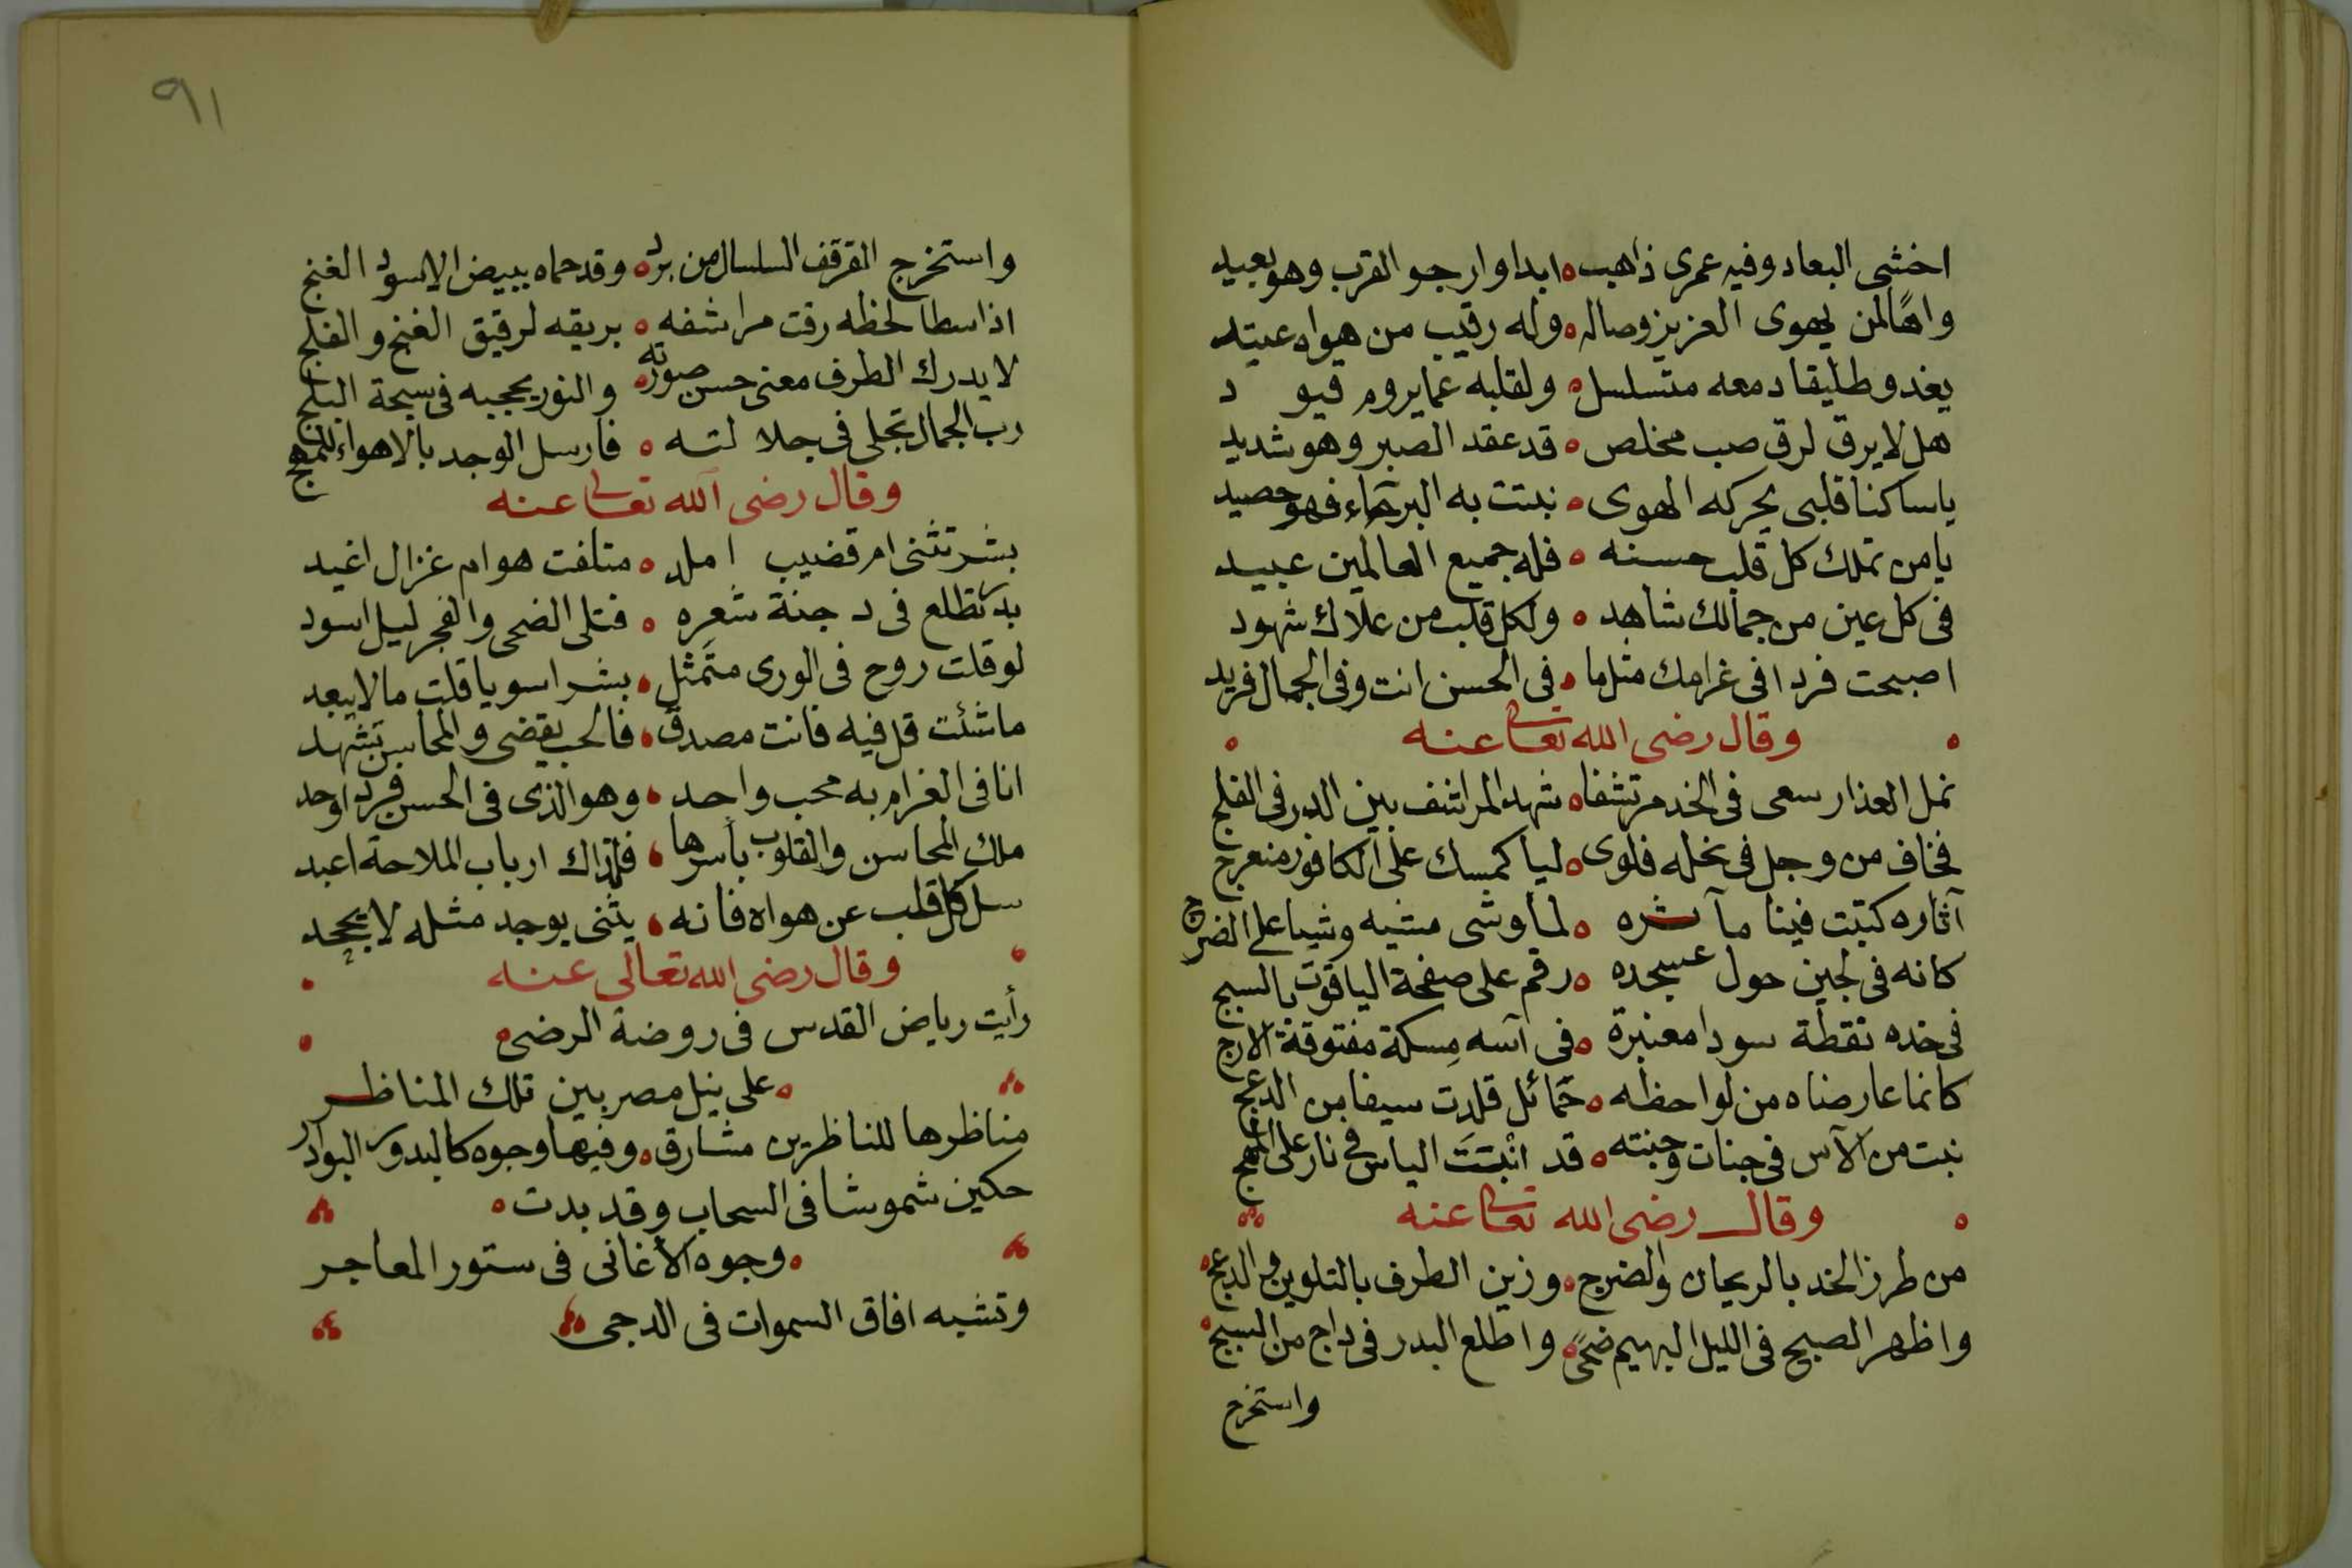 اخشى البعاد وفيه عمرى ذاهب ه ابدا وارجو القرب وهو بعيد
واهًا لمن يهوى العزيز وصاله ه وله رقيب من هواه عتيد
يغدو طليقا دمعه متسلسل ه ولقلبه عما يروم قيود
هل لا يرق لرق صب مخلص ه قد عقد الصبر وهو شديد
ياساكنا قلبى يحركه الهوى ه نبتت به البرحاء فهو حصيد
يا من تملك كل قلب حسنه ه فله جميع العالمين عبيد
فى كل عين من جمالك شاهد ه ولكل قلب من علاك شهود
اصبحت فردا فى غرامك مثل ما ه فى الحسن انت وفى الجمال فريد
ه وقال رضى الله تعالى عنه ه
نمل العذار سعى فى الخد مرتشفا ه شهد المراشف بين الدر فى الفلج
فخاف من وجل فى نحله فلوى ه ليا كمسك على الكافور منعرج
آثاره كتبت فينا مآثره ه لما وشى مشيه وشيا على الضرج
كانه فى لجين حول عسجده ه رقم على صفحة الياقوت بالسبج
فى خده نقطة سودا معنبرة ه فى آسه مسكة مفتوقة الارج
كانما عارضاه من لواحظه ه حمائل قلدت سيفا من الدعج
نبت من الآس فى جنات وجنته ه قد انبتت الياس فى نار على المهج
ه وقال رضى الله تعالى عنه
من طرز الخد بالريحان والضرج ه وزين الطرف بالتلوين والدعج
واظهر الصبح فى الليل البهيم ضحىً ه واطلع البدر فى داج من السبج
واستخرج
٩١
واستخرج القرقف السلسال من برد ه وقد حماه ببيض الاسود الغنج
اذا سطا لحظه رقت مراشفه ه بريقه لرقيق الغنج والفلج
لا يدرك الطرف معنى حسن صورته ه والنور يحجبه فى سبحة البلج
رب الجمال تجلى فى جلالته ه فارسل الوجد بالاهواء للمهج
وقال رضى الله تعالى عنه
بشر تثنى ام قضيب املد ه متلفت هو ام غزال اغيد
بدر تطلع فى دجنة شعره ه فتلى الضحى والفجر ليل اسود
لو قلت روح فى الورى متمثل ه بشرا سويا قلت ما لا يبعد
ما شئت قل فيه فانت مصدق ه فالحب يقضى والمحاسن تشهد
انا فى الغرام به محب واحد ه وهو الذى فى الحسن فرد اوحد
ملك المحاسن والقلوب بأسرها ه فلذاك ارباب الملاحة اعبد
سل كل قلب عن هواه فانه ه يثنى بوجد مثله لا يجحد
وقال رضى الله تعالى عنه
رأيت رياض القدس فى روضة الرضى ه
ه على نيل مصر بين تلك المناظر
مناظرها للناظرين مشارق ه وفيها وجوه كالبدور البوادر
حكين شموشا فى السحاب وقد بدت ه
ه وجوه الأغانى فى ستور المعاجر
وتشبه افاق السموات فى الدجى